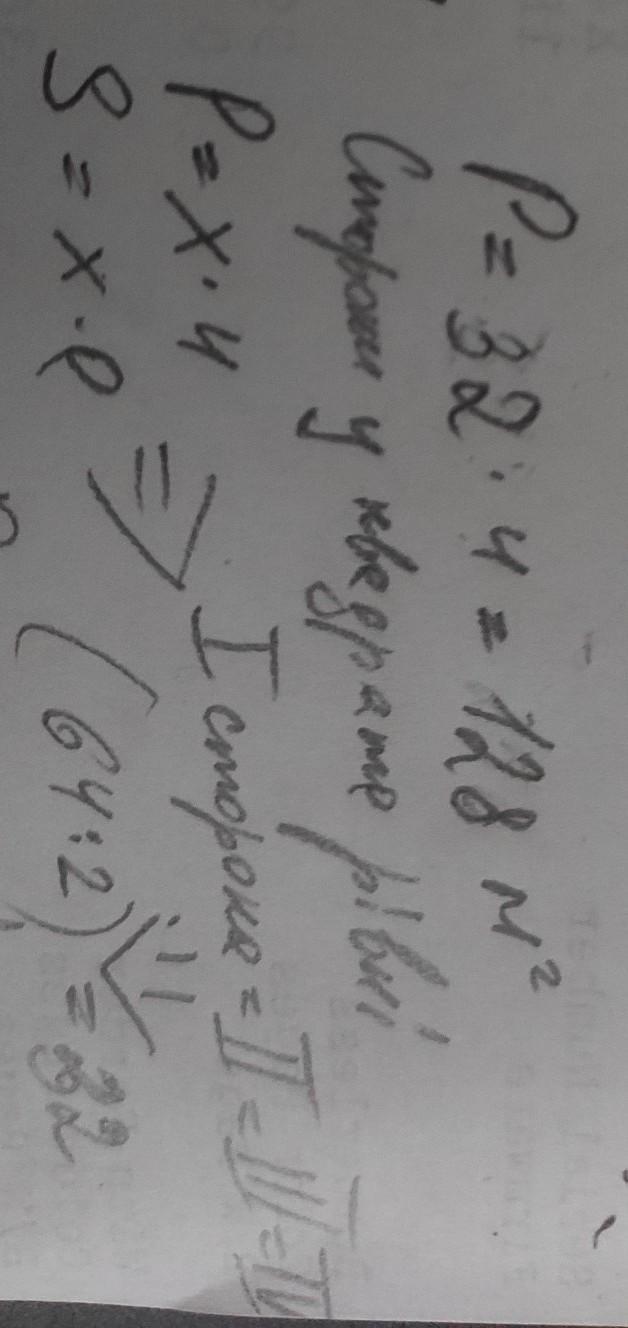 P = 32 · 4 = 128 м²
Сторони у квадрата рівні
P = x · 4
I сторона = II = III = IV
S = x · l
(64 : 2) = 32